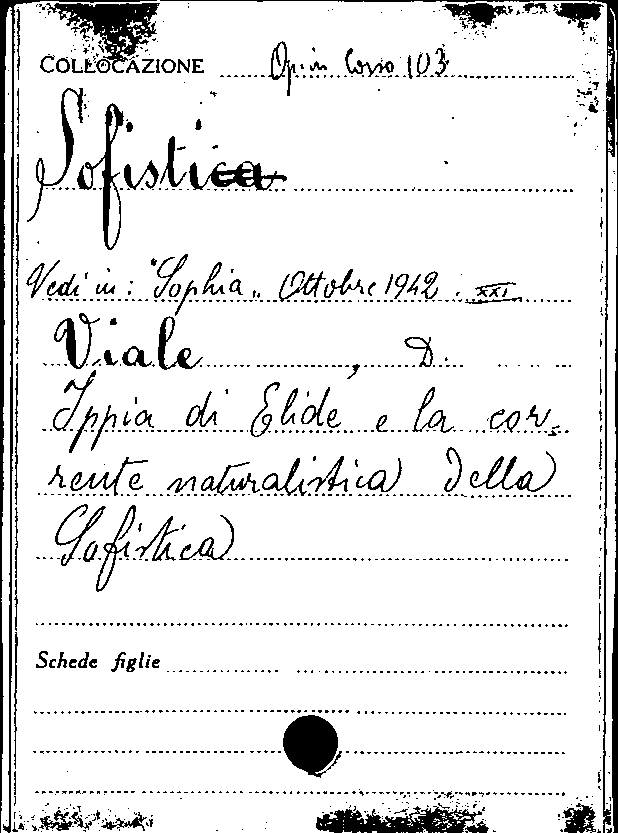 COLLOCAZIONE Op. in Corso 103
Sofistica
Vedi in: "Sophia" Ottobre 1942. XXI
Viale, D.
Ippia di Elide e la cor=
rente naturalistica della
Sofistica
Schede figlie